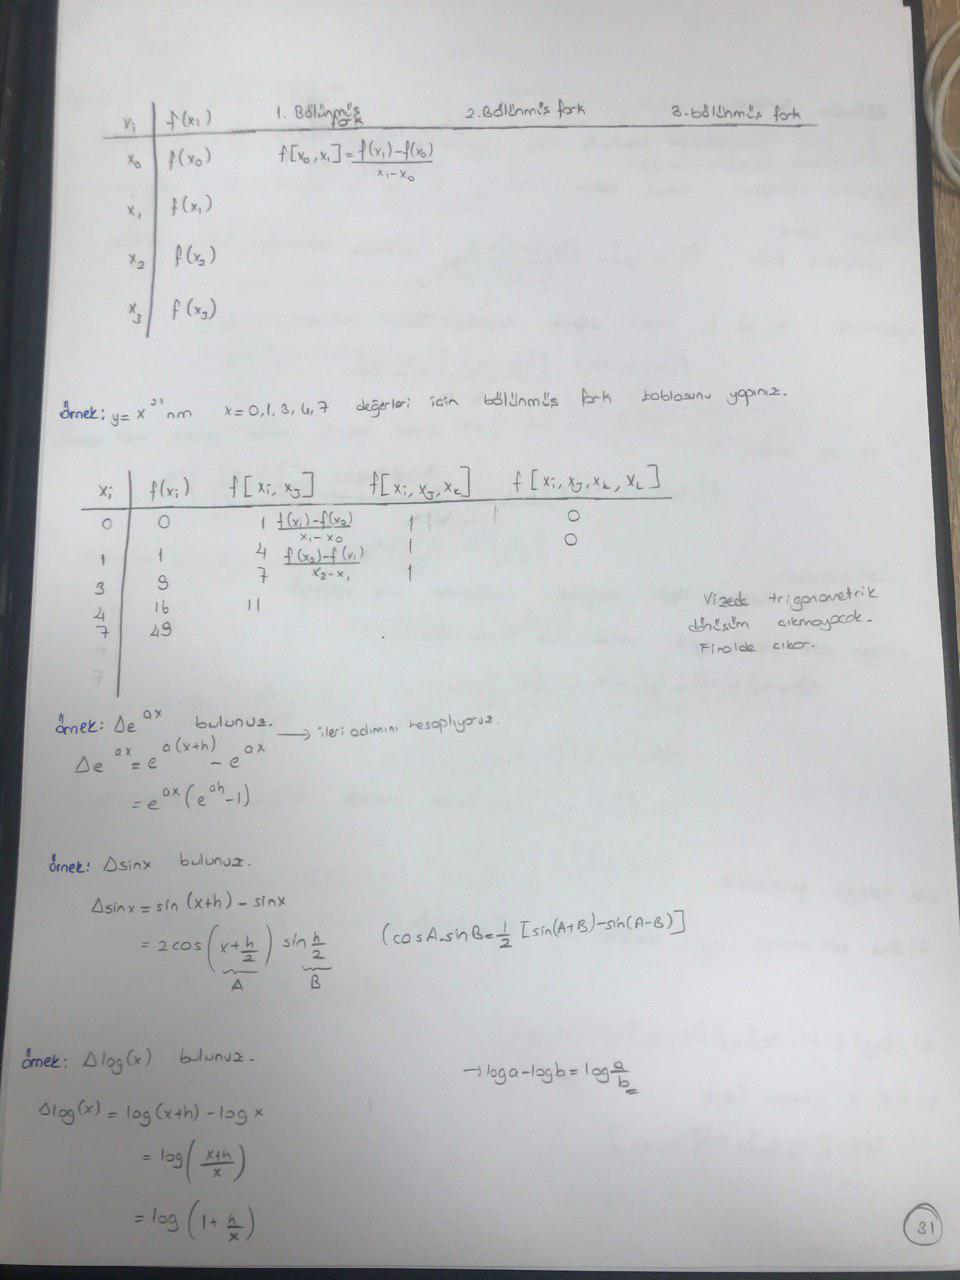 xi f(xi) 1. Bölünmüş fark 2. Bölünmüş fark 3. bölünmüş fark
x0 f(x0) f[x0,x1] = f(x1)-f(x0) / x1-x0
x1 f(x1)
x2 f(x2)
x3 f(x3)
örnek: y= x^2 x=0,1,3,4,7 değerleri için bölünmüş fark tablosunu yapınız.
xi f(xi) f[xi, xJ] f[xi, xJ, xk] f[xi, xJ, xk, xL]
0 0 1 f(x1)-f(x0) / x1-x0 1 0
1 1 4 f(x2)-f(x1) / x2-x1 1 0
3 9 7 1
4 16 11
7 49
Vizede trigonometrik
dönüşüm çıkmayacak.
Finalde çıkar.
örnek: Δe^ax bulunuz. → ileri adımını hesaplıyoruz.
Δe^ax = e^a(x+h) - e^ax
= e^ax (e^ah -1)
örnek: Δsinx bulunuz.
Δsinx = sin(x+h) - sinx
= 2 cos (x+h/2) sin h/2 (cosA.sinB = 1/2 [sin(A+B)-sin(A-B)]
A B
örnek: Δlog(x) bulunuz.
→ loga-logb = log a/b
Δlog(x) = log(x+h) - log x
= log( x+h / x )
= log (1+ h/x)
31